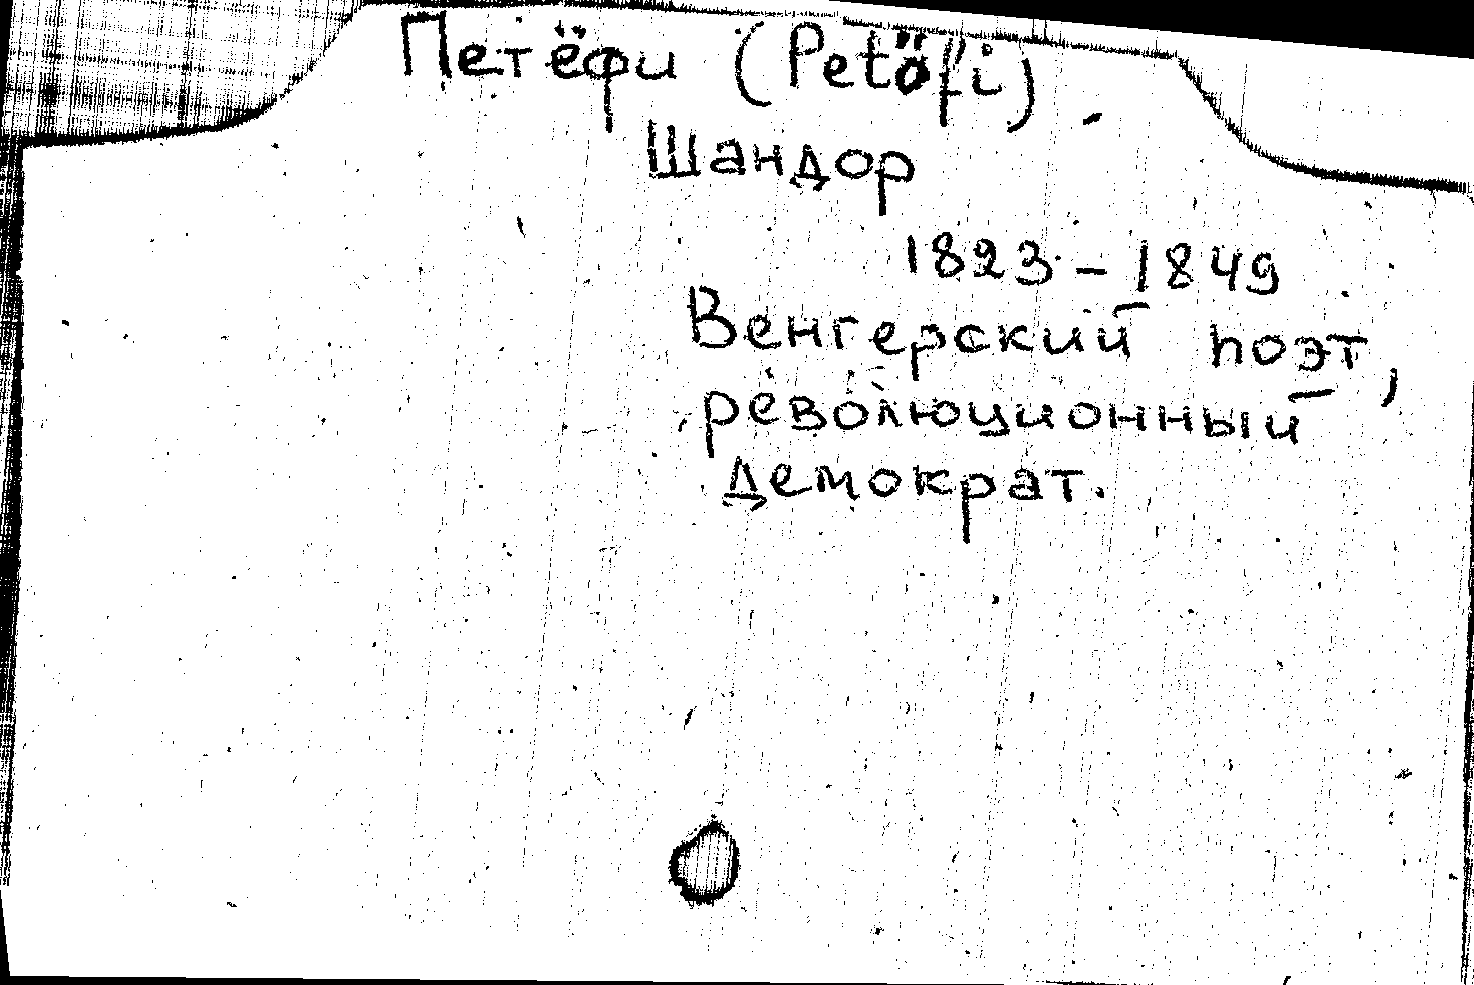 Петёфи (Petőfi)
Шандор
1823 – 1849
Венгерский поэт,
революционный
демократ.